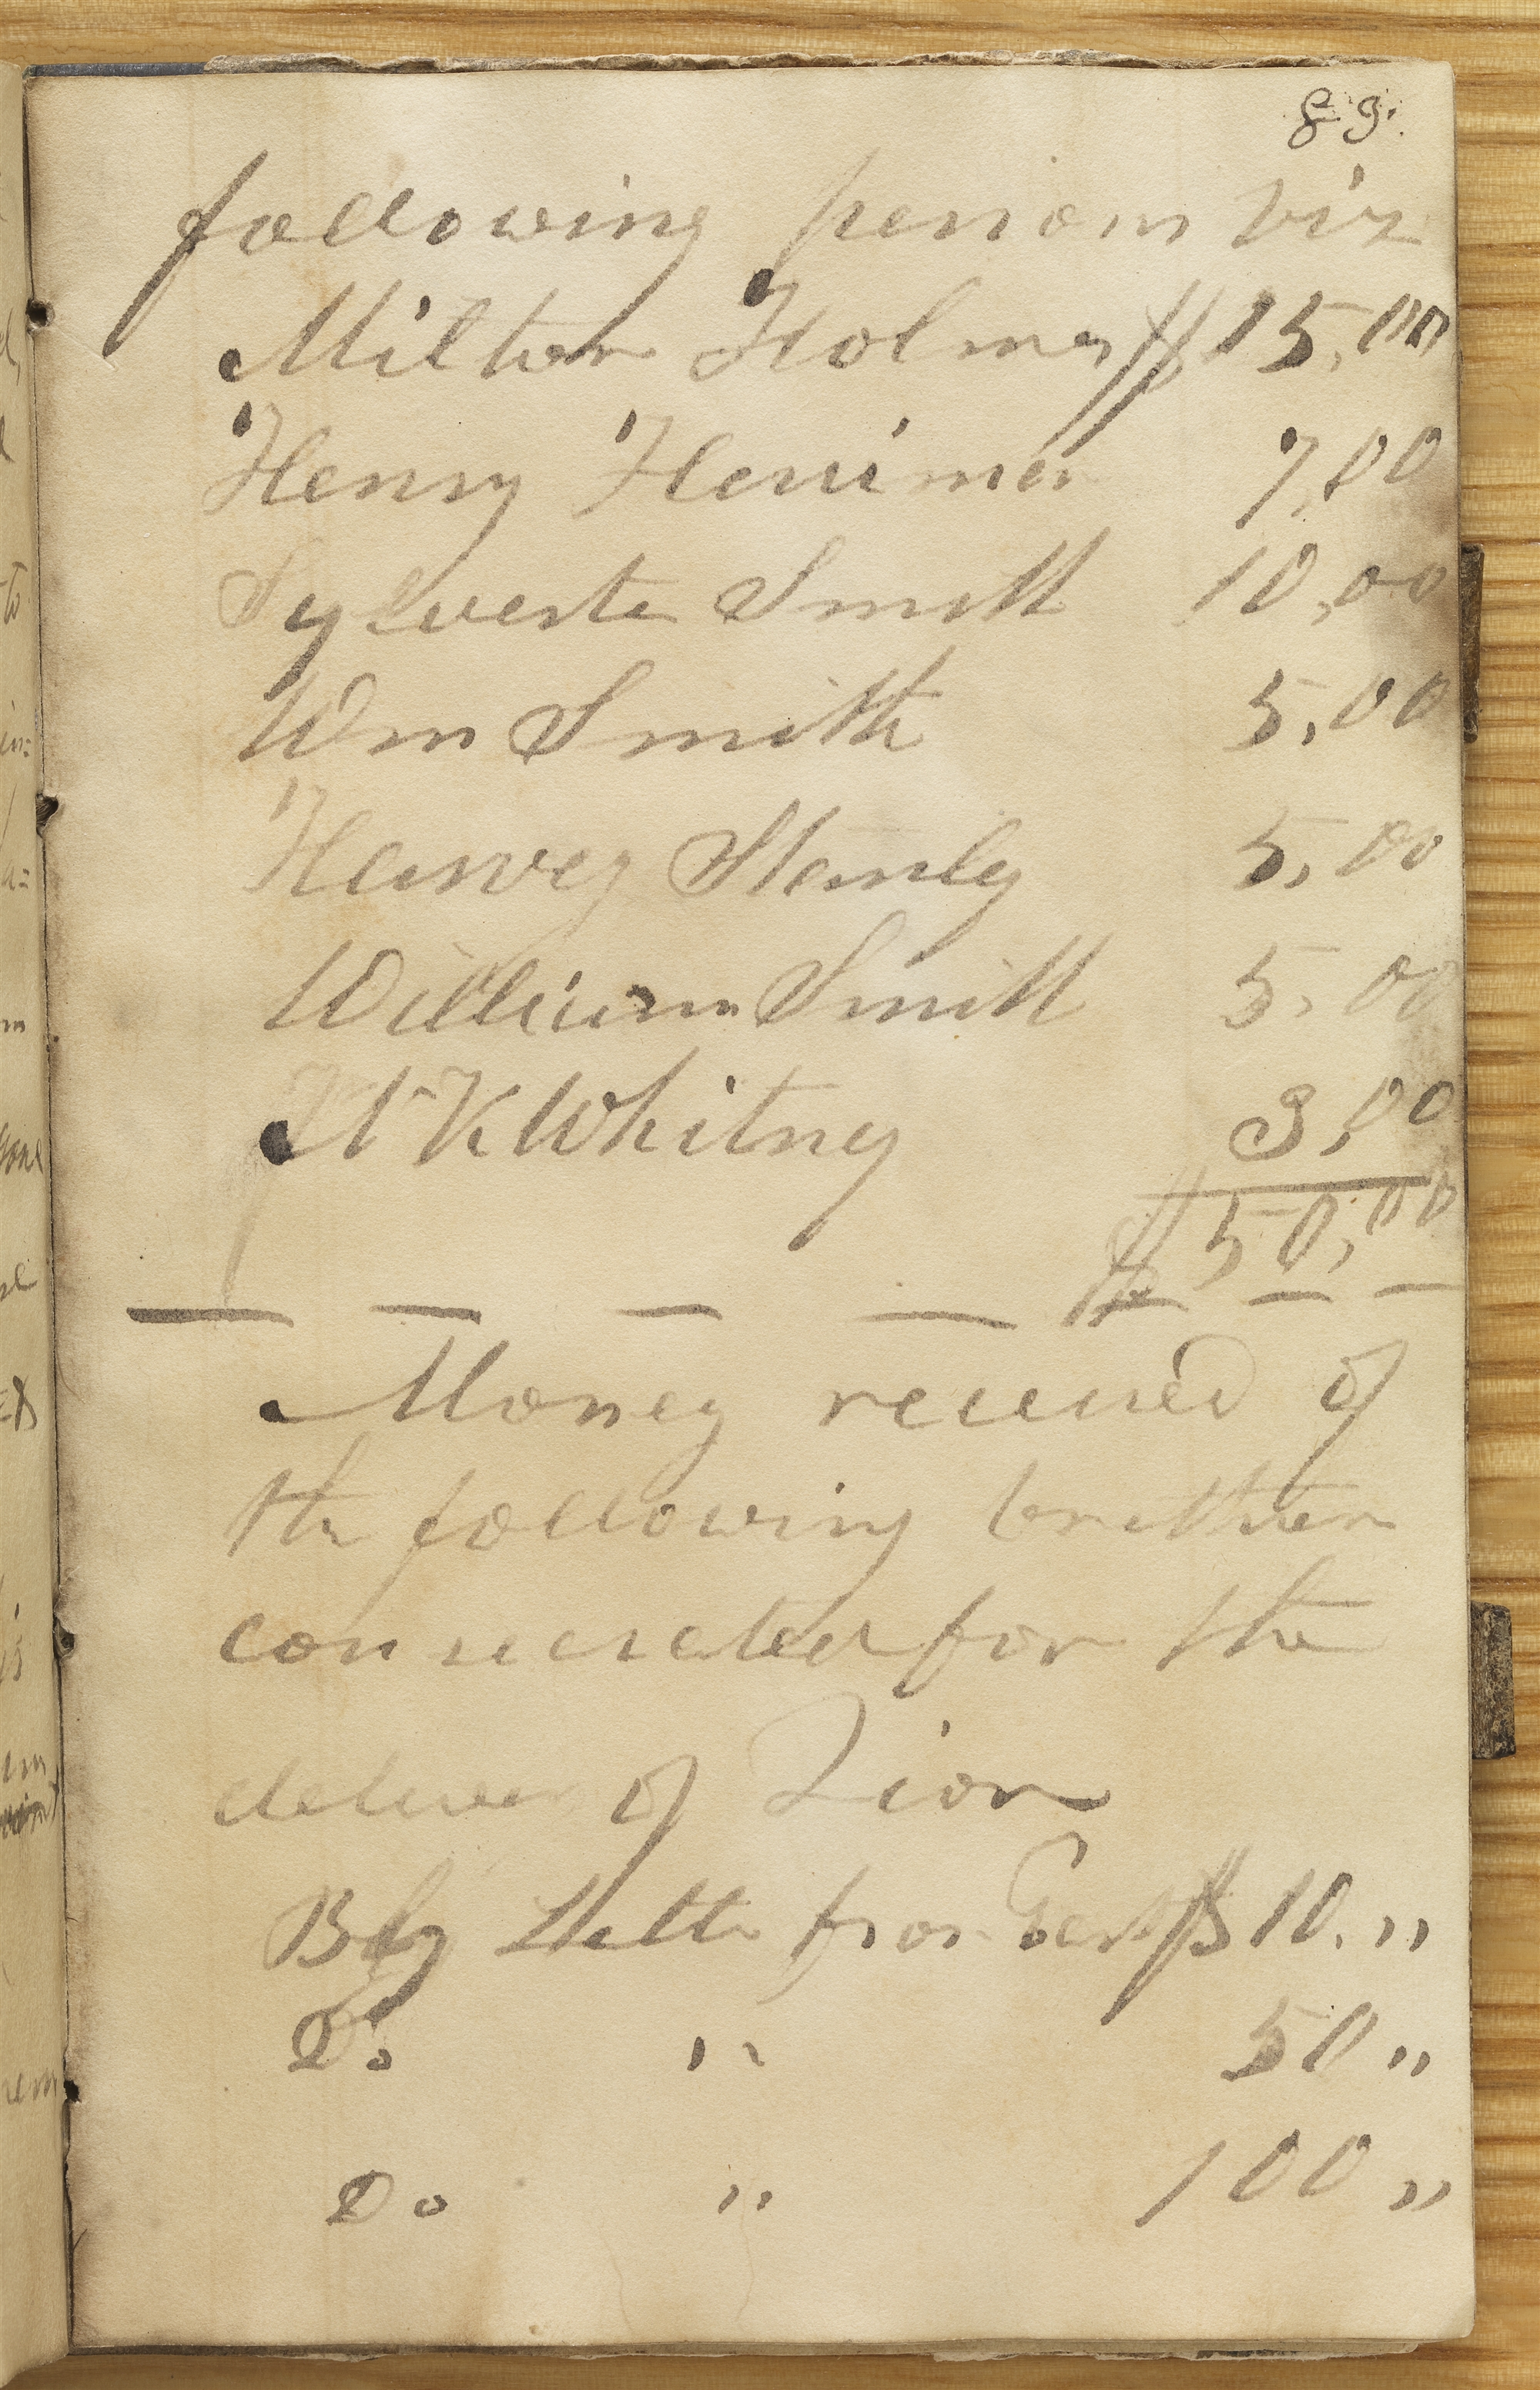 89.
following persons viz
Milton Holmes $15,00
Henry Herrimer 7,00
Sylvester Smith 10,00
Wm Smith 5,00
Harvey Stanley 5,00
William Smith 5,00
N K Whitney 3,00
$50,00
Money received of
the following brethren
consecrated for the
deliver of Zion
By letter from East $10."
Do " 50"
Do " 100"